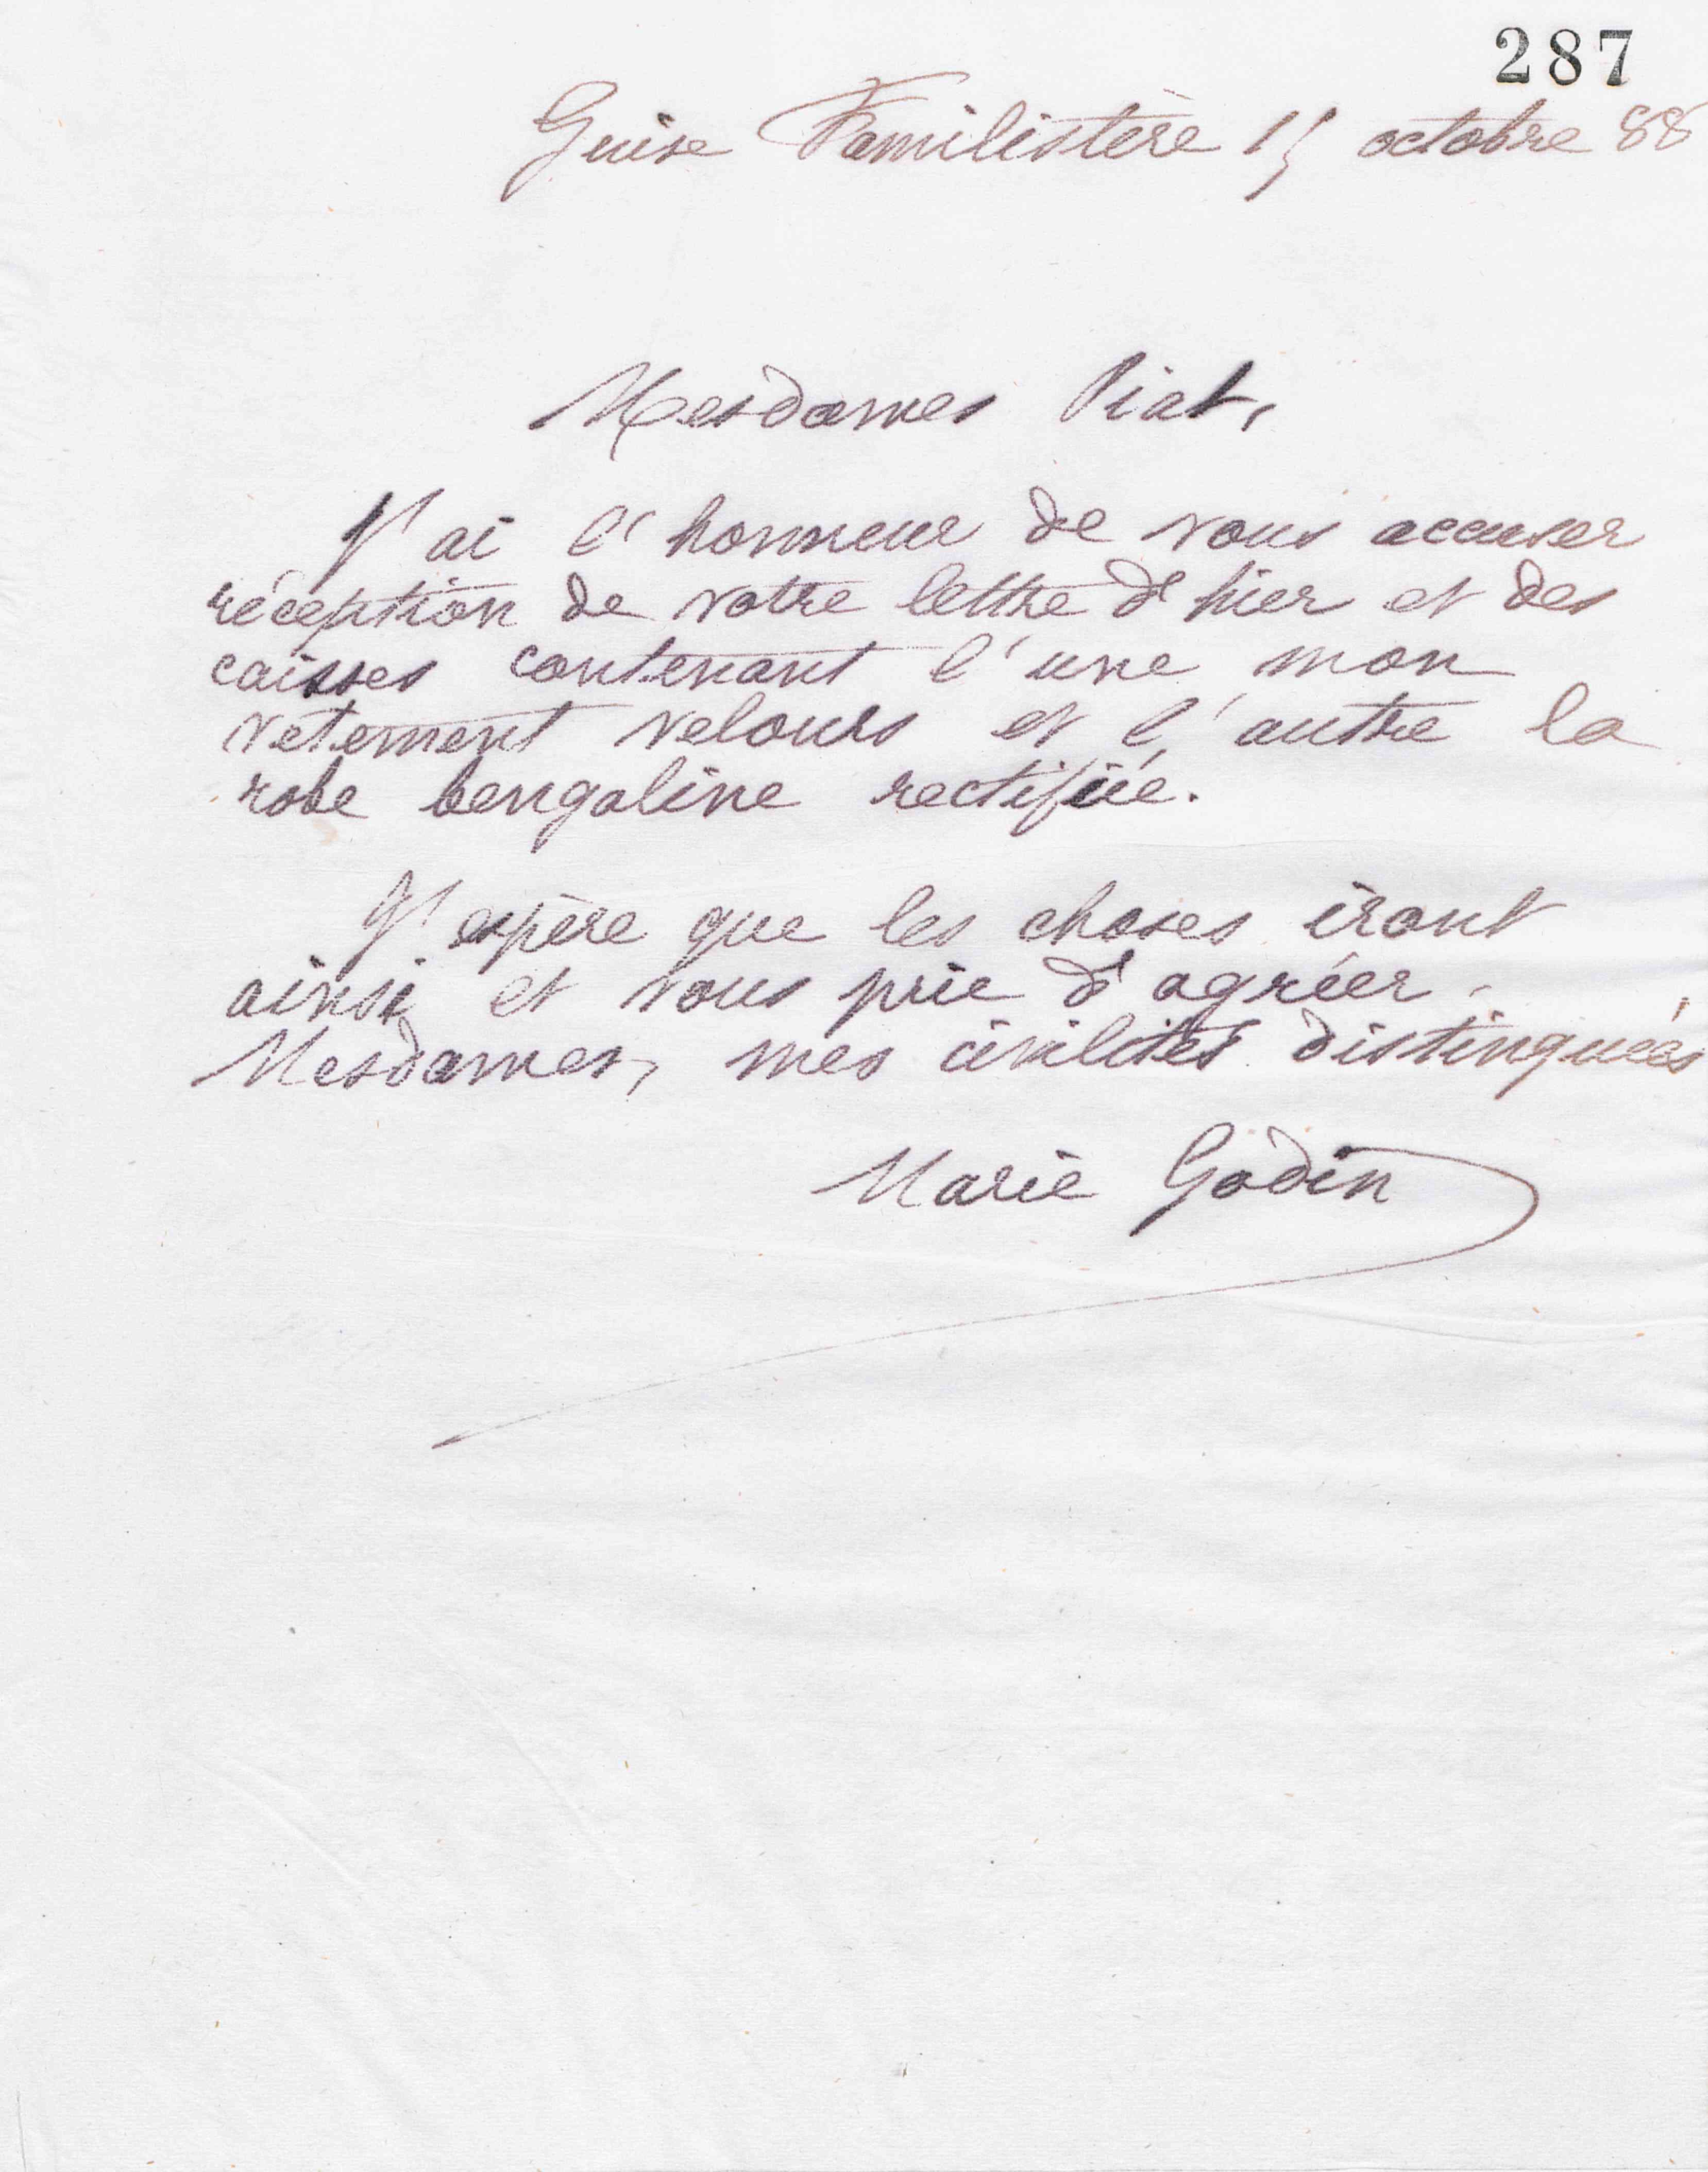 287
Guise Familistère 15 octobre 88
Mesdames Piat,
J'ai l'honneur de vous accuser
réception de votre lettre d'hier et des
caisses contenant l'une mon
vetement velours et l'autre la
robe bengaline rectifiée.
J'espère que les choses iront
ainsi et vous prie d'agréer,
Mesdames, mes civilités distinguées
Marie Godin